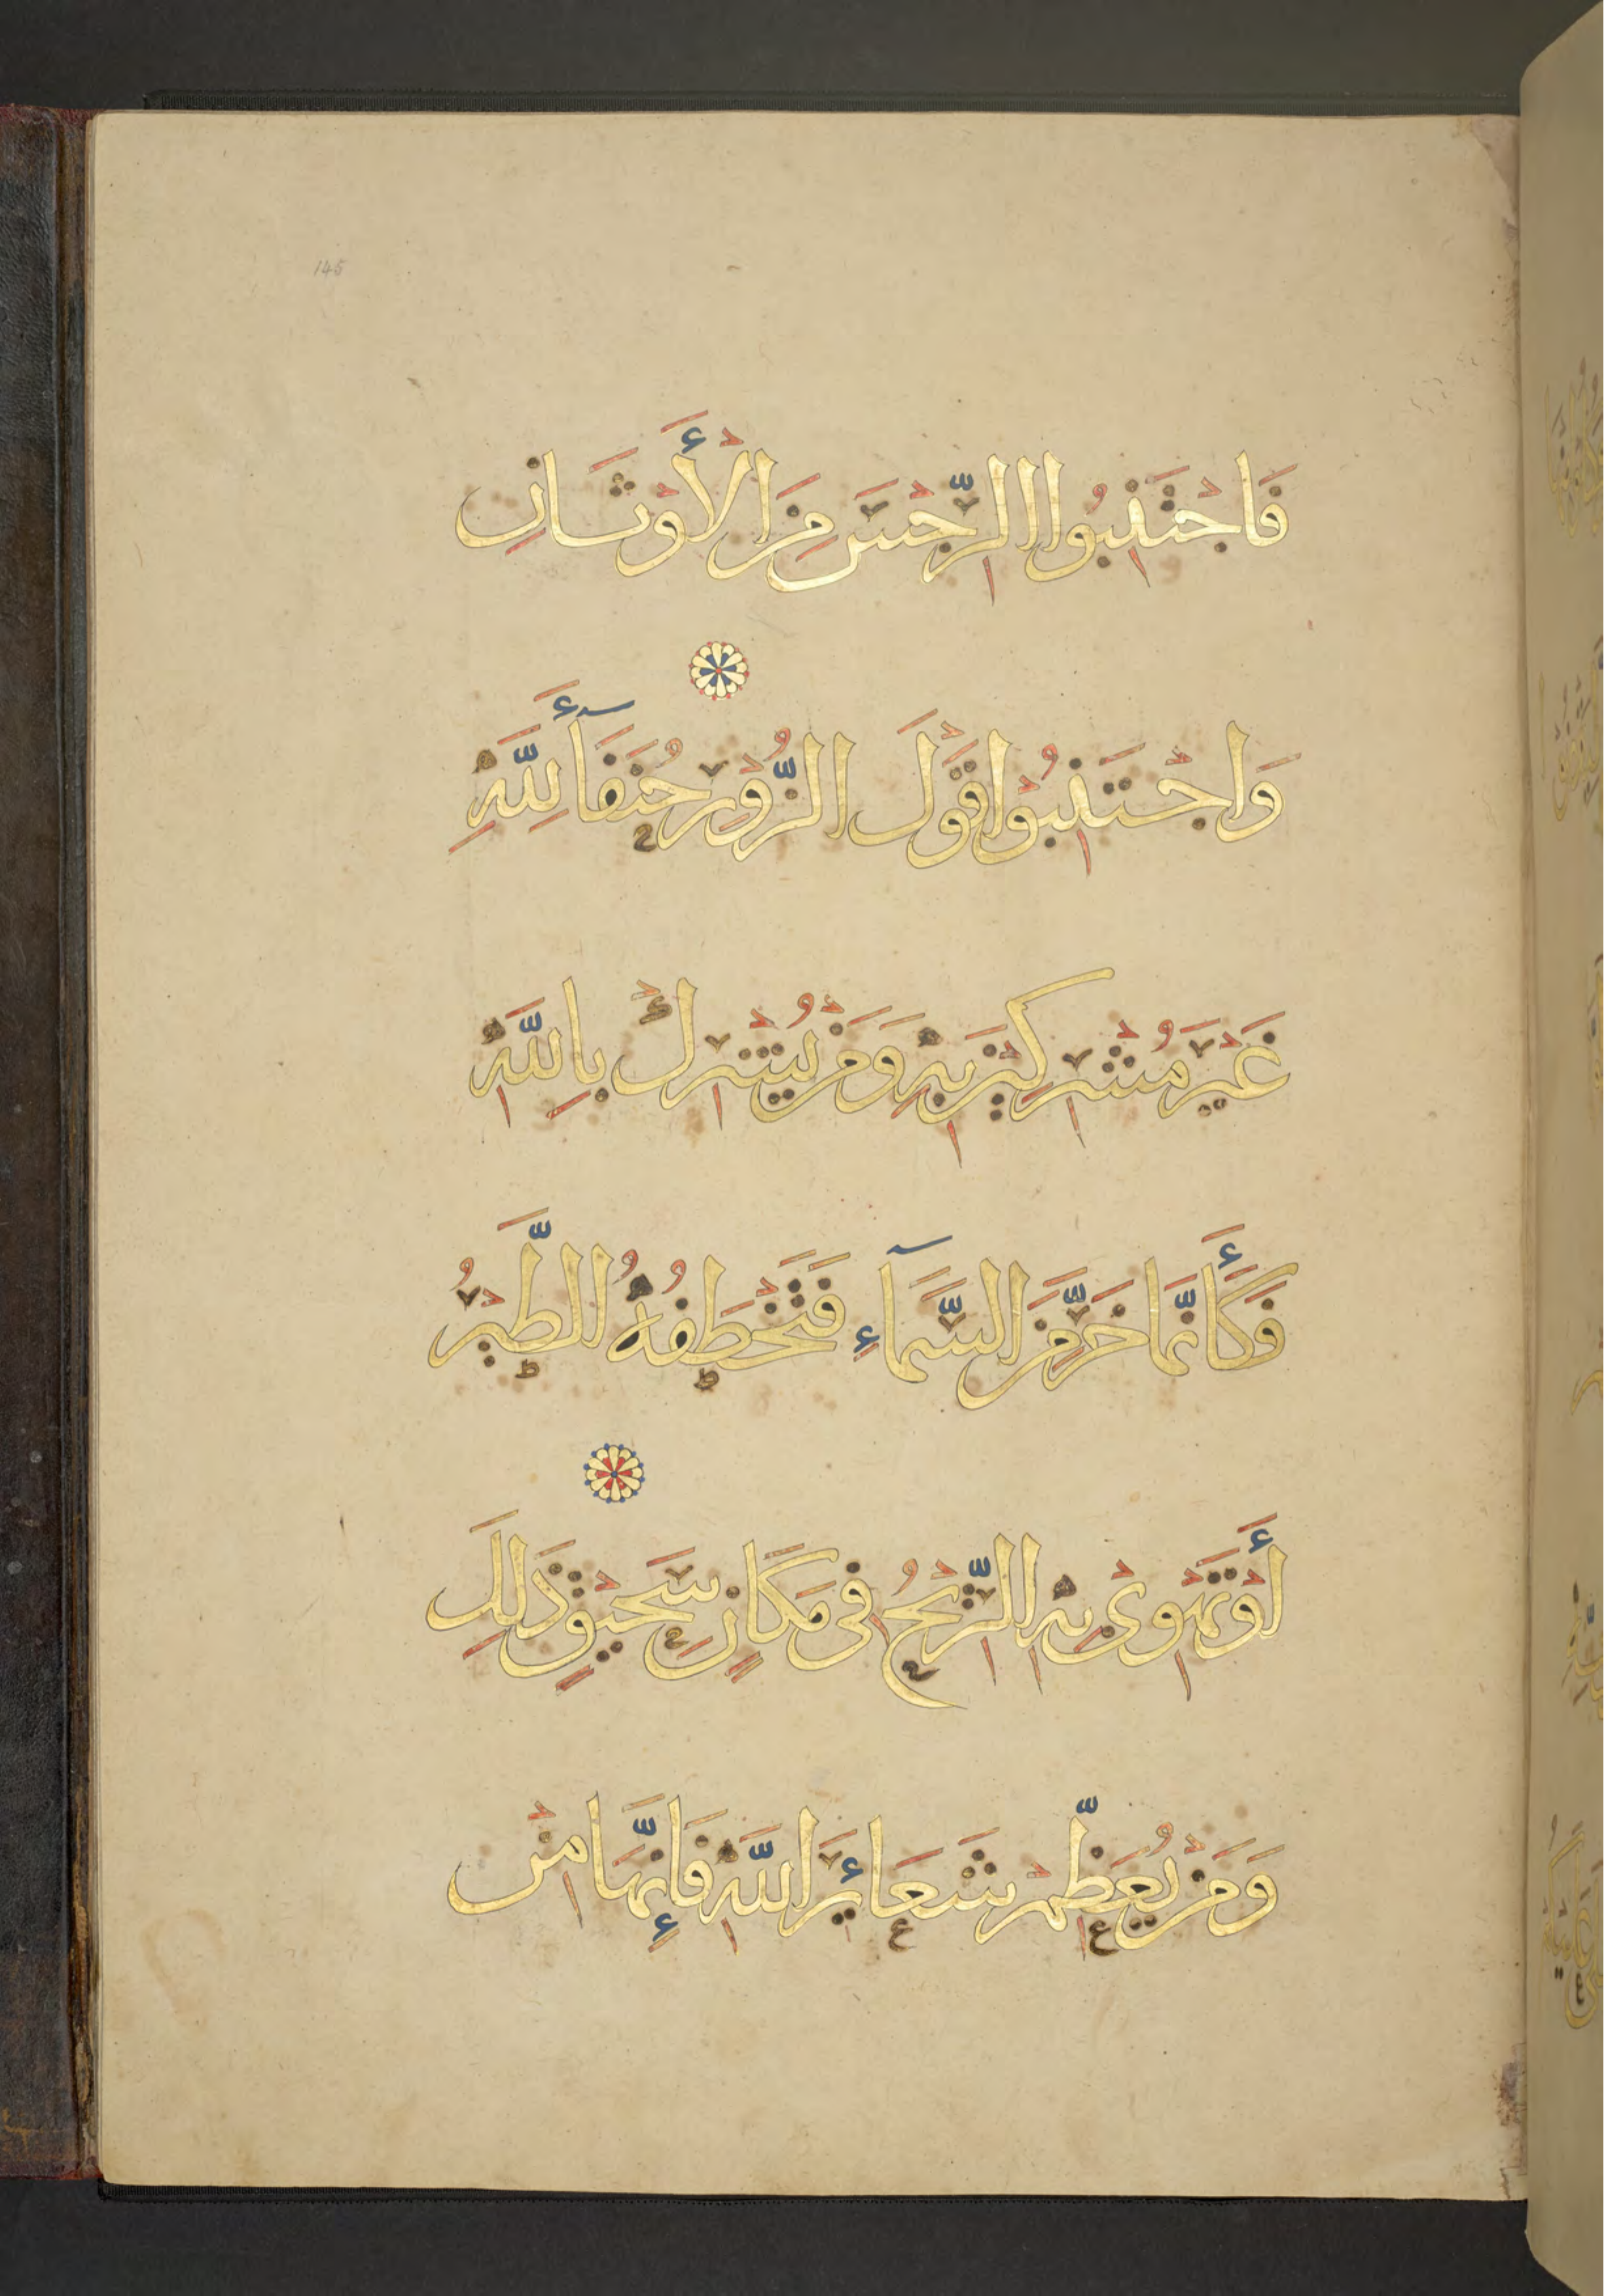 145
فَاجْتَنِبُوا الرِّجْسَ مِنَ الْأَوْثَانِ
وَاجْتَنِبُوا قَوْلَ الزُّورِ حُنَفَآءَ لِلَّهِ
غَيْرَ مُشْرِكِينَ بِهِ وَمَنْ يُشْرِكْ بِاللَّهِ
فَكَأَنَّمَا خَرَّ مِنَ السَّمَآءِ فَتَخْطَفُهُ الطَّيْرُ
أَوْ تَهْوِي بِهِ الرِّيحُ فِي مَكَانٍ سَحِيقٍ ذَلِكَ
وَمَنْ يُعَظِّمْ شَعَائِرَ اللَّهِ فَإِنَّهَا مِنْ